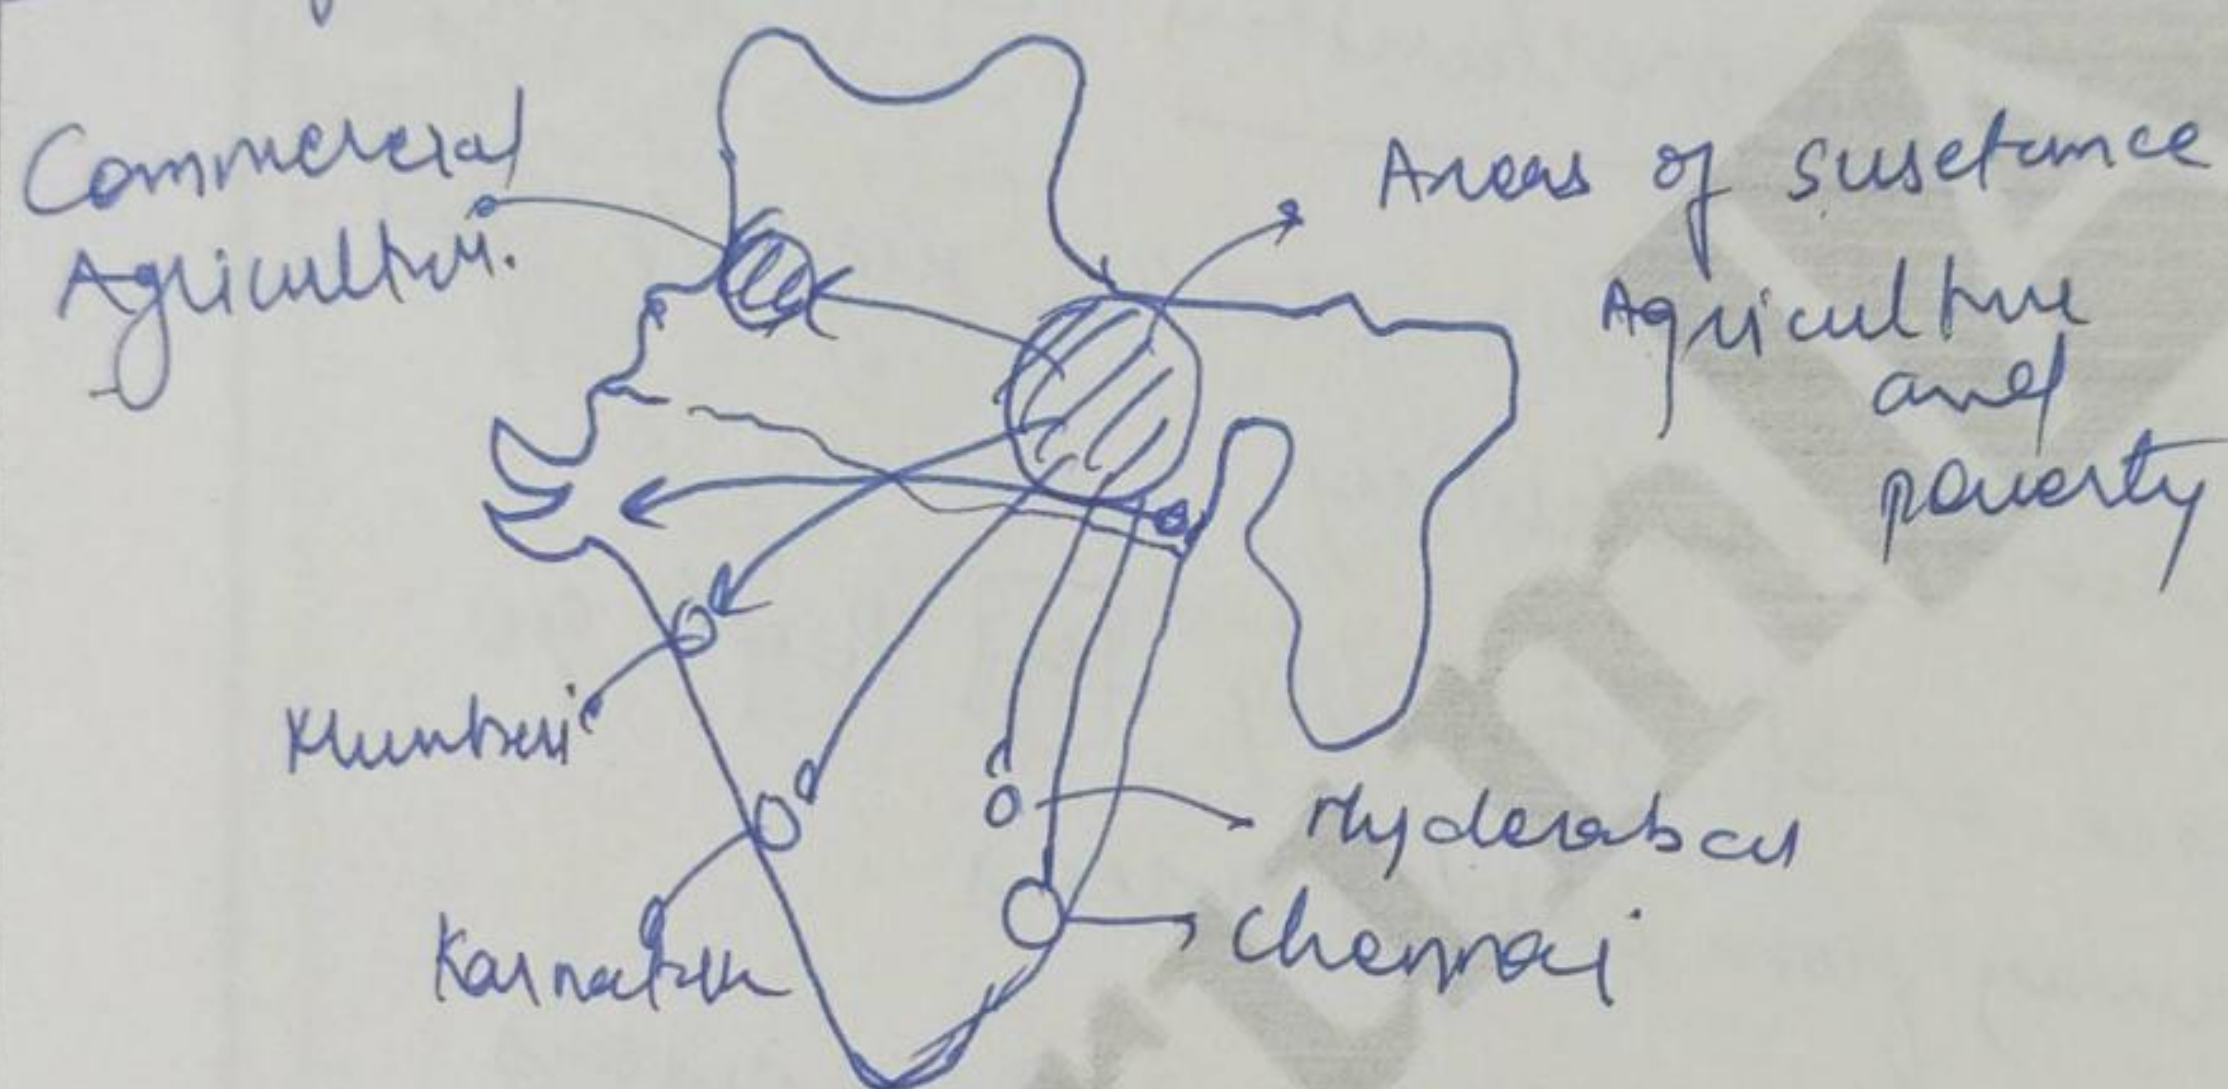 Commercial
Agriculture.
Areas of susetance
Agriculture
and
poverty
Mumbai
Karnataka
Hyderabad
Chennai